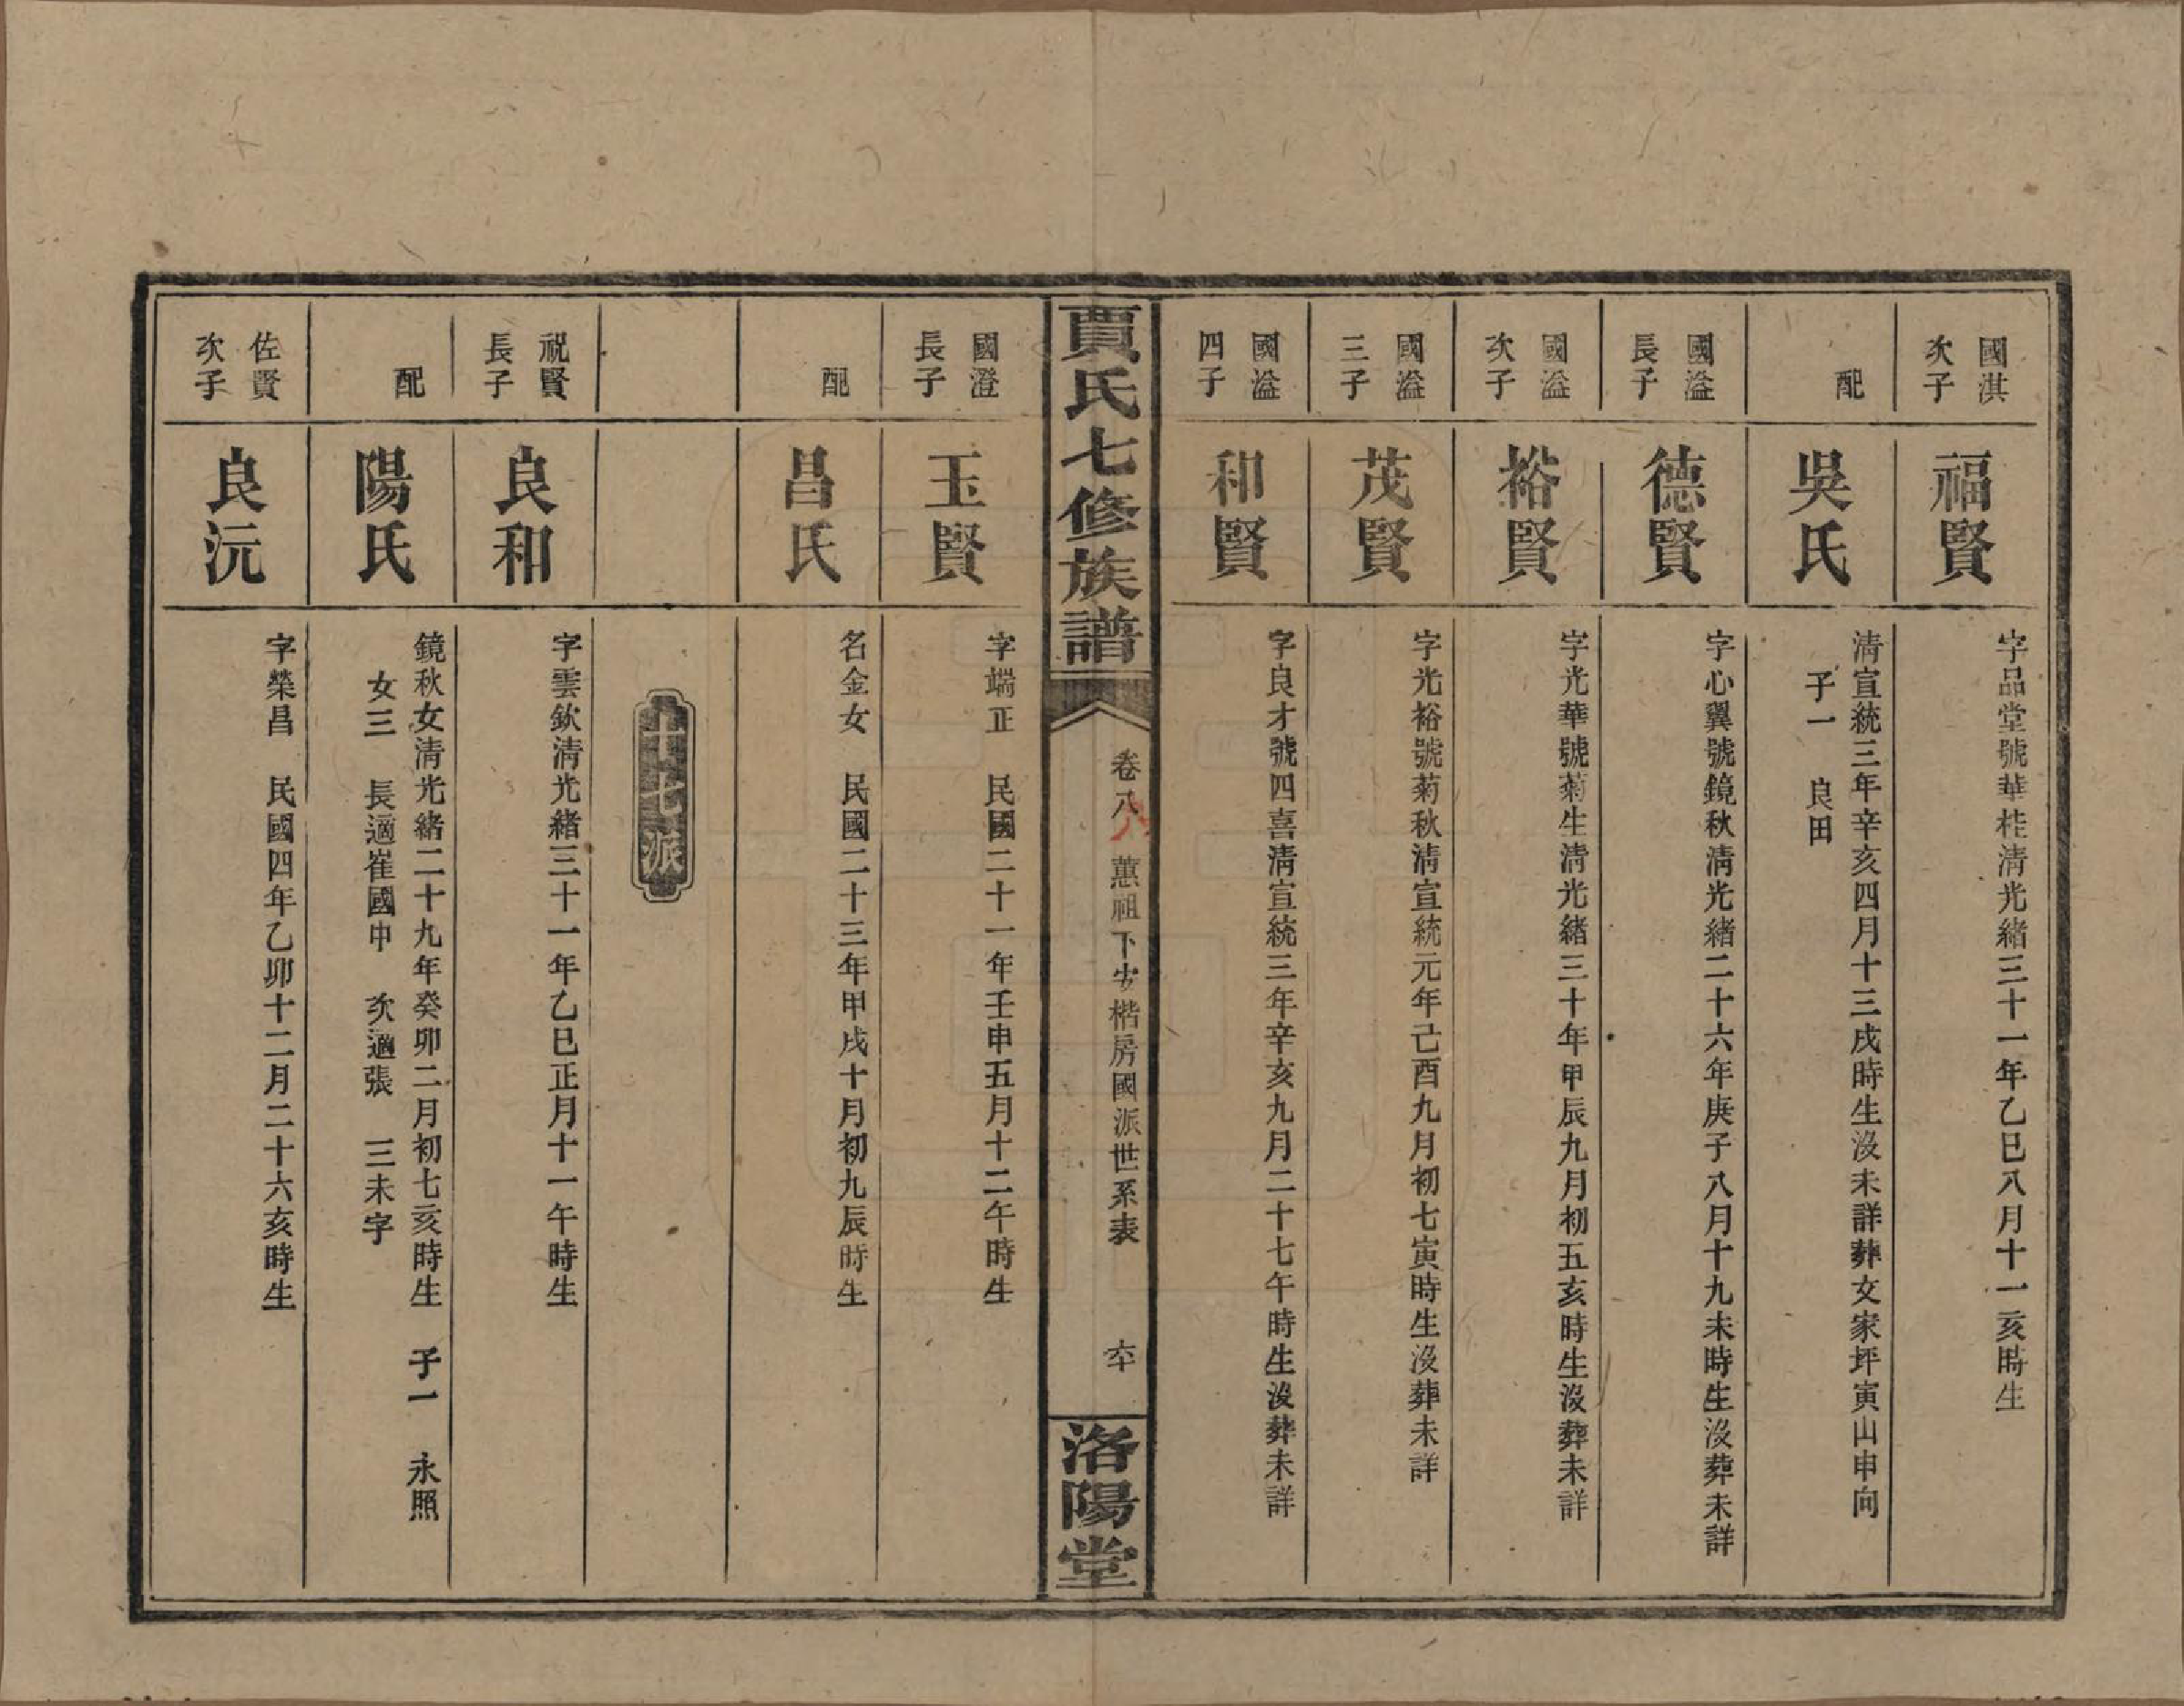 國淇
次子
福賢
字品堂號華桂淸光緖三十一年乙巳八月十一亥時生
配
吳氏
淸宣統三年辛亥四月十三戌時生沒未詳葬文家坪寅山申向
子一　良田
國溢
長子
德賢
字心翼號鏡秋淸光緖二十六年庚子八月十九未時生沒葬未詳
國溢
次子
裕賢
字光華號菊生淸光緖三十年甲辰九月初五亥時生沒葬未詳
國溢
三子
茂賢
字光裕號菊秋淸宣統元年己酉九月初七寅時生沒葬未詳
國溢
四子
和賢
字良才號四喜淸宣統三年辛亥九月二十七午時生沒葬未詳
賈氏七修族譜
卷八　蕙祖下安楷房國派世系表
六十
洛陽堂
國澄
長子
玉賢
字端正　民國二十一年壬申五月十二午時生
配
昌氏
名金女　民國二十三年甲戌十月初九辰時生
十七派
祝賢
長子
良和
字雲欽淸光緖三十一年乙巳正月十一午時生
配
陽氏
鏡秋女淸光緖二十九年癸卯二月初七亥時生　子一　永照
女三　長適崔國申　次適張　三未字
佐賢
次子
良沅
字榮昌　民國四年乙卯十二月二十六亥時生